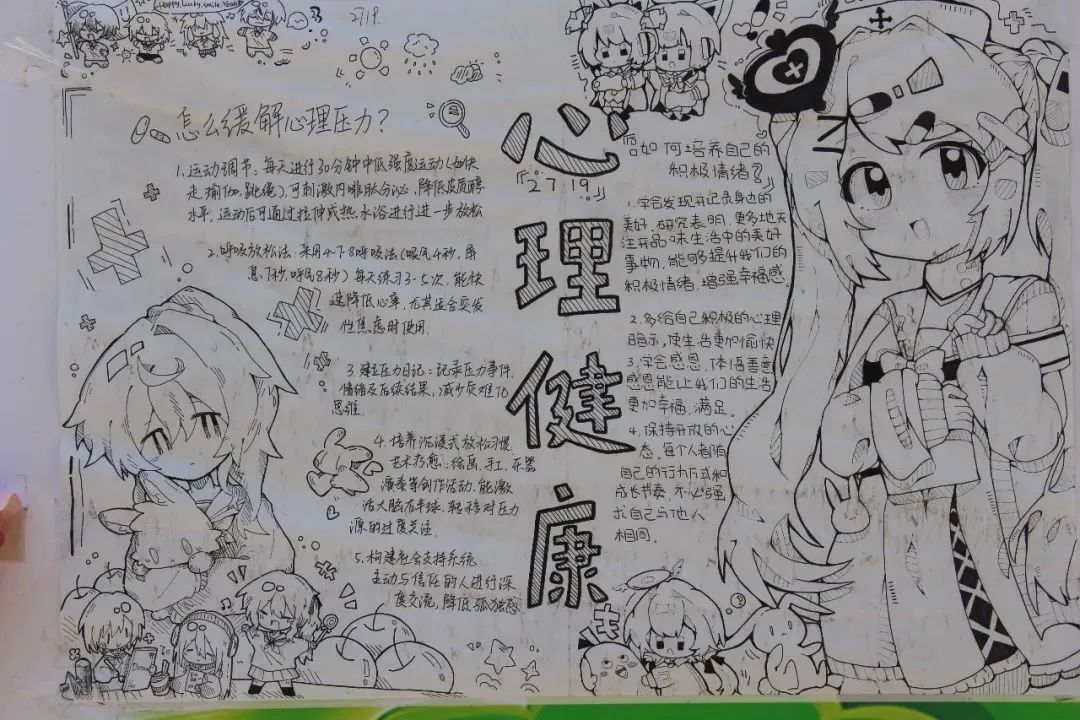 Happy.Lucky.smile.Yeah
2719.
怎么缓解心理压力？
1.运动调节：每天进行30分钟中低强度运动(如快
走,瑜伽,跳绳),可刺激内啡肽分泌,降低皮质醇
水平,运动后可通过拉伸或热水浴进行进一步放松
2.呼吸放松法：采用4-7-8呼吸法(吸气4秒,屏
息7秒,呼气8秒)每天练习3-5次,能快
速降低心率,尤其适合突发
性焦虑时使用.
3.建立压力日记：记录压力事件,
情绪及后续结果,减少灾难化
思维.
4.培养沉浸式放松习惯
艺术疗愈：绘画,手工,乐器
演奏等创作活动,能激
活大脑右半球,转移对压力
源的过度关注.
5.构建社会支持系统
主动与信任的人进行深
度交流,降低孤独感
心理健康
『2719』
『如何培养自己的
积极情绪？』
1.学会发现并记录身边的
美好,研究表明,更多地关
注并品味生活中的美好
事物,能够提升我们的
积极情绪,增强幸福感.
2.多给自己积极的心理
暗示,使生活更加愉快
3.学会感恩,体悟善意
感恩能让我们的生活
更加幸福,满足.
4.保持开放的心
态,每个人都有
自己的行为方式和
成长节奏,不必强
求自己与他人
相同.